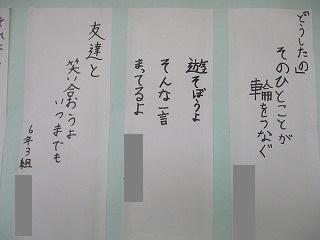 「どうしたの」
そのひとことが
輪をつなぐ
遊そぼうよ
そんな一言
まってるよ
友達と
笑い合おうよ
いつまでも
6年3組